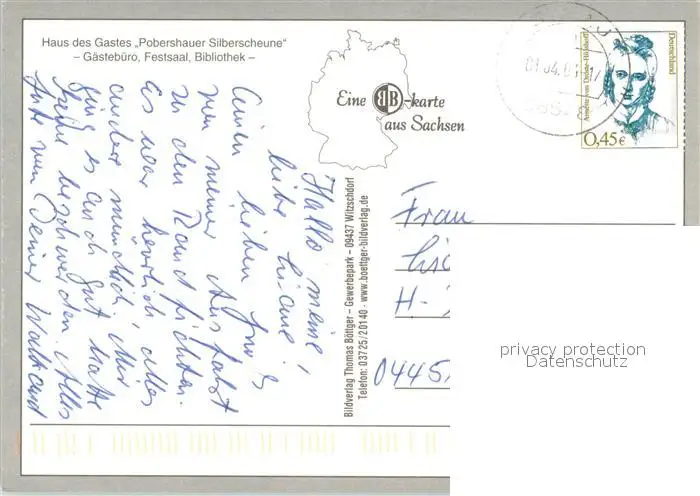 Haus des Gastes „Pobershauer Silberscheune“
– Gästebüro, Festsaal, Bibliothek –
Eine BB-karte
aus Sachsen
Deutschland
Annette von Droste-Hülshoff
0,45€
Hallo meine
liebe
einen lieben Gruß
von meiner Ausfahrt
zu den Randfichten.
Es war herrlich alles
andere mündlich! Mir
ging es auch gut hatte
keine beschwerden. Alles
Gute von Deiner Waltraud
Bildverlag Thomas Böttger – Gewerbepark – 09437 Witzschdorf
Telefon: 03725/20140 · www.boettger-bildverlag.de
Frau
H-
0445
privacy protection
Datenschutz